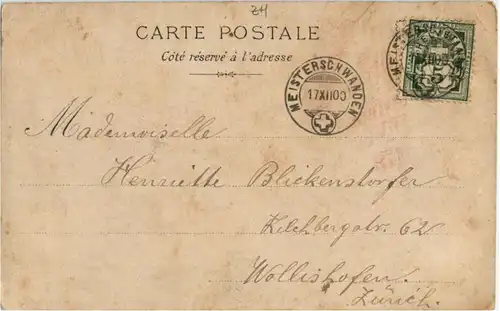 ZH
CARTE POSTALE
Côté réservé à l'adresse
MEISTERSCHWANDEN
17XII00
Mademoiselle
Henriette Blickenstorfer
Kilchbergstr. 62
Wollishofen.
Zürich.